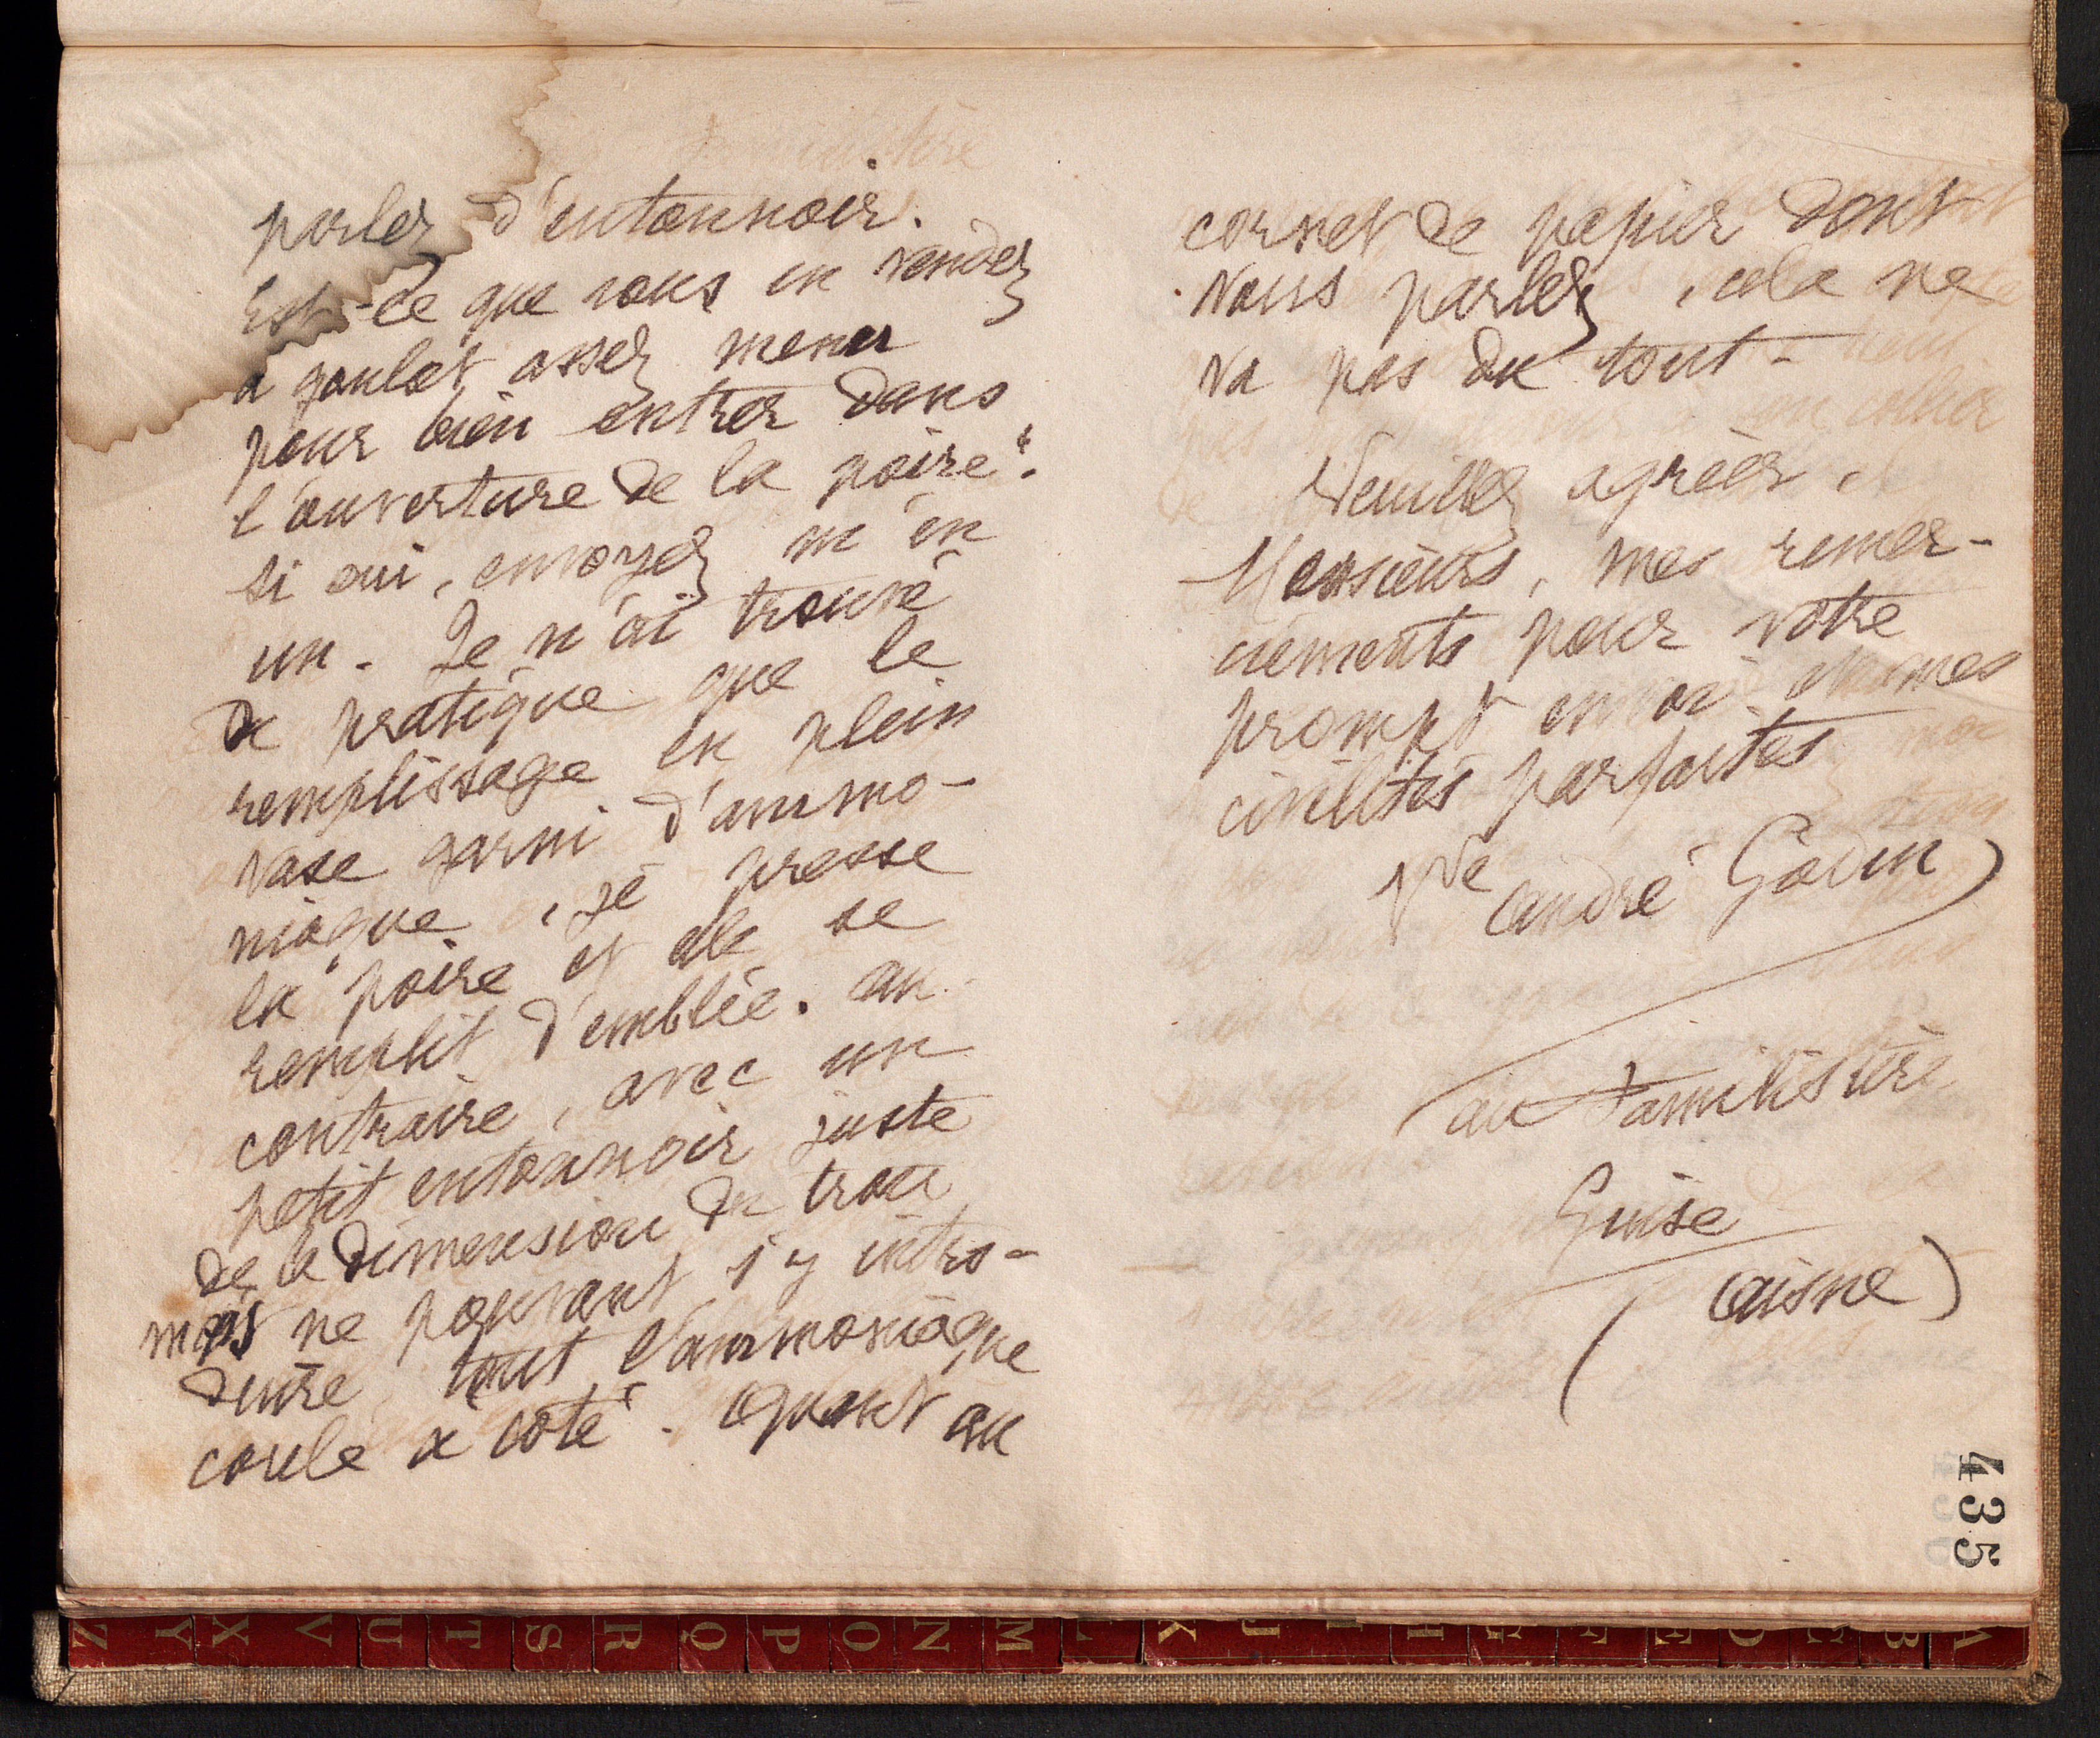 parlez d'entonnoir.
Est-ce que vous en vendez
à goulet assez menu
pour bien entrer dans
l'ouverture de la poire ?
si oui, envoyez m'en
un. Je n'ai trouvé
de pratique que le
remplissage en plein
vase garni d'ammo-
niaque, je presse
la poire et elle se
remplit d'emblée. au
contraire, avec un
petit entonnoir juste
de la dimension du trou
mais ne pouvant s'y intro-
duire, tout l'ammoniaque
coule à côté. Quant au
cornet de papier dont
vous parlez, cela ne
va pas du tout -
Veuillez agréer,
Messieurs, mes remer-
ciements pour votre
prompt envoi et mes
civilités parfaites
Vve andré Godin
au Familistère
Guise
(aisne)
435
Z Y X V U T S R Q P O N M L K J I H G F E D C B A